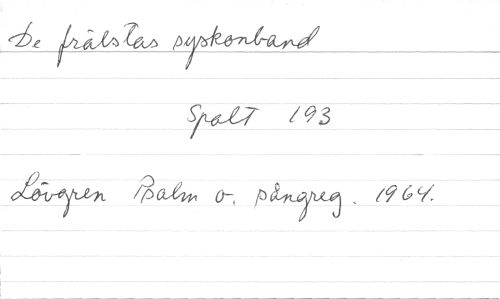 De frälstas syskonband
Spalt 193
Lövgren Psalm o. sångreg. 1964.